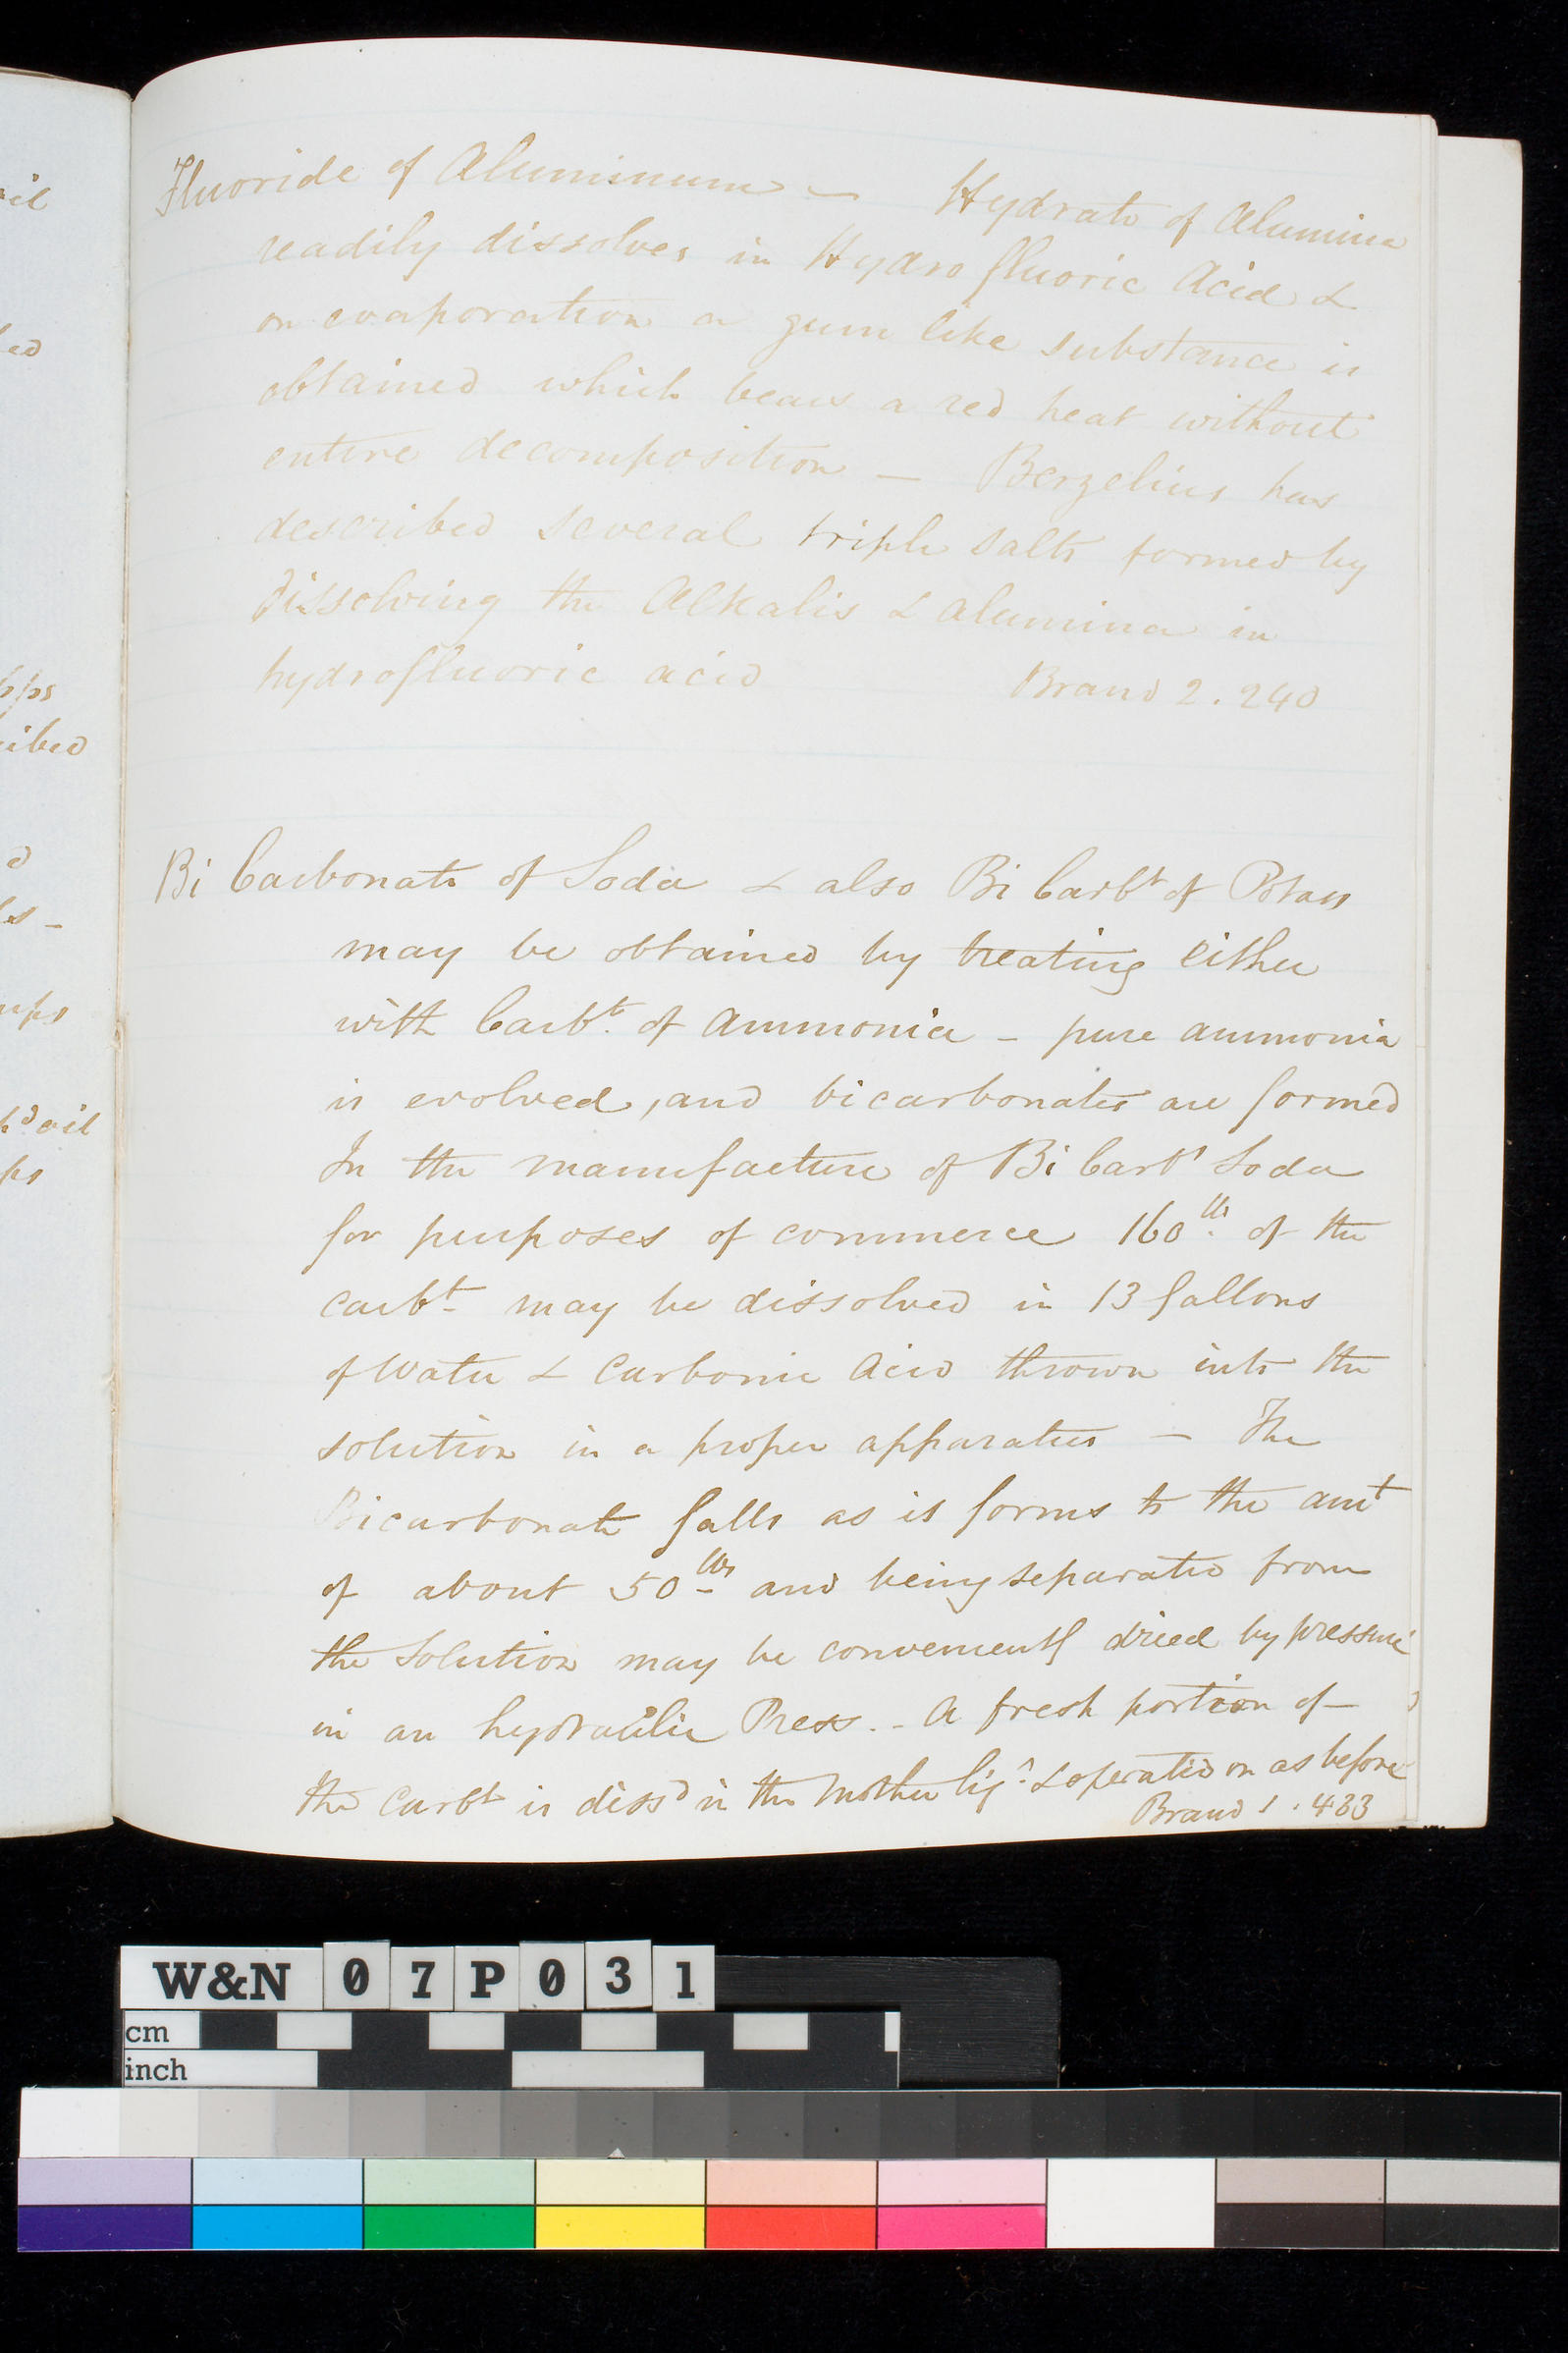 Fluoride of Aluminum — Hydrate of Alumina
readily dissolves in Hydrofluoric Acid &
on evaporation a gum like substance is
obtained which bears a red heat without
entire decomposition — Berzelius has
described several triple salts formed by
dissolving the Alkalis & alumina in
hydrofluoric acid Brand 2.240
Bi Carbonate of Soda & also Bi Carbt of Potass
may be obtained by treating either
with Carbt. of Ammonia - pure ammonia
is evolved, and bicarbonates are formed
In the manufacture of Bi Carbt Soda
for purposes of commerce 160 lbs. of the
carbt may be dissolved in 13 Gallons
of Water & Carbonic Acid thrown into the
solution in a proper apparatus — The
Bicarbonate falls as it forms to the amt
of about 50 lbs and being separated from
the Solution may be conveniently dried by pressure
in an hydraulic Press. - A fresh portion of
the carbt is dissd in the Mother liqr. & operated on as before
Brand 1.433
il
ed
pps
ibed
d
ls -
ups
hd oil
ps
W&N 07P031
cm
inch